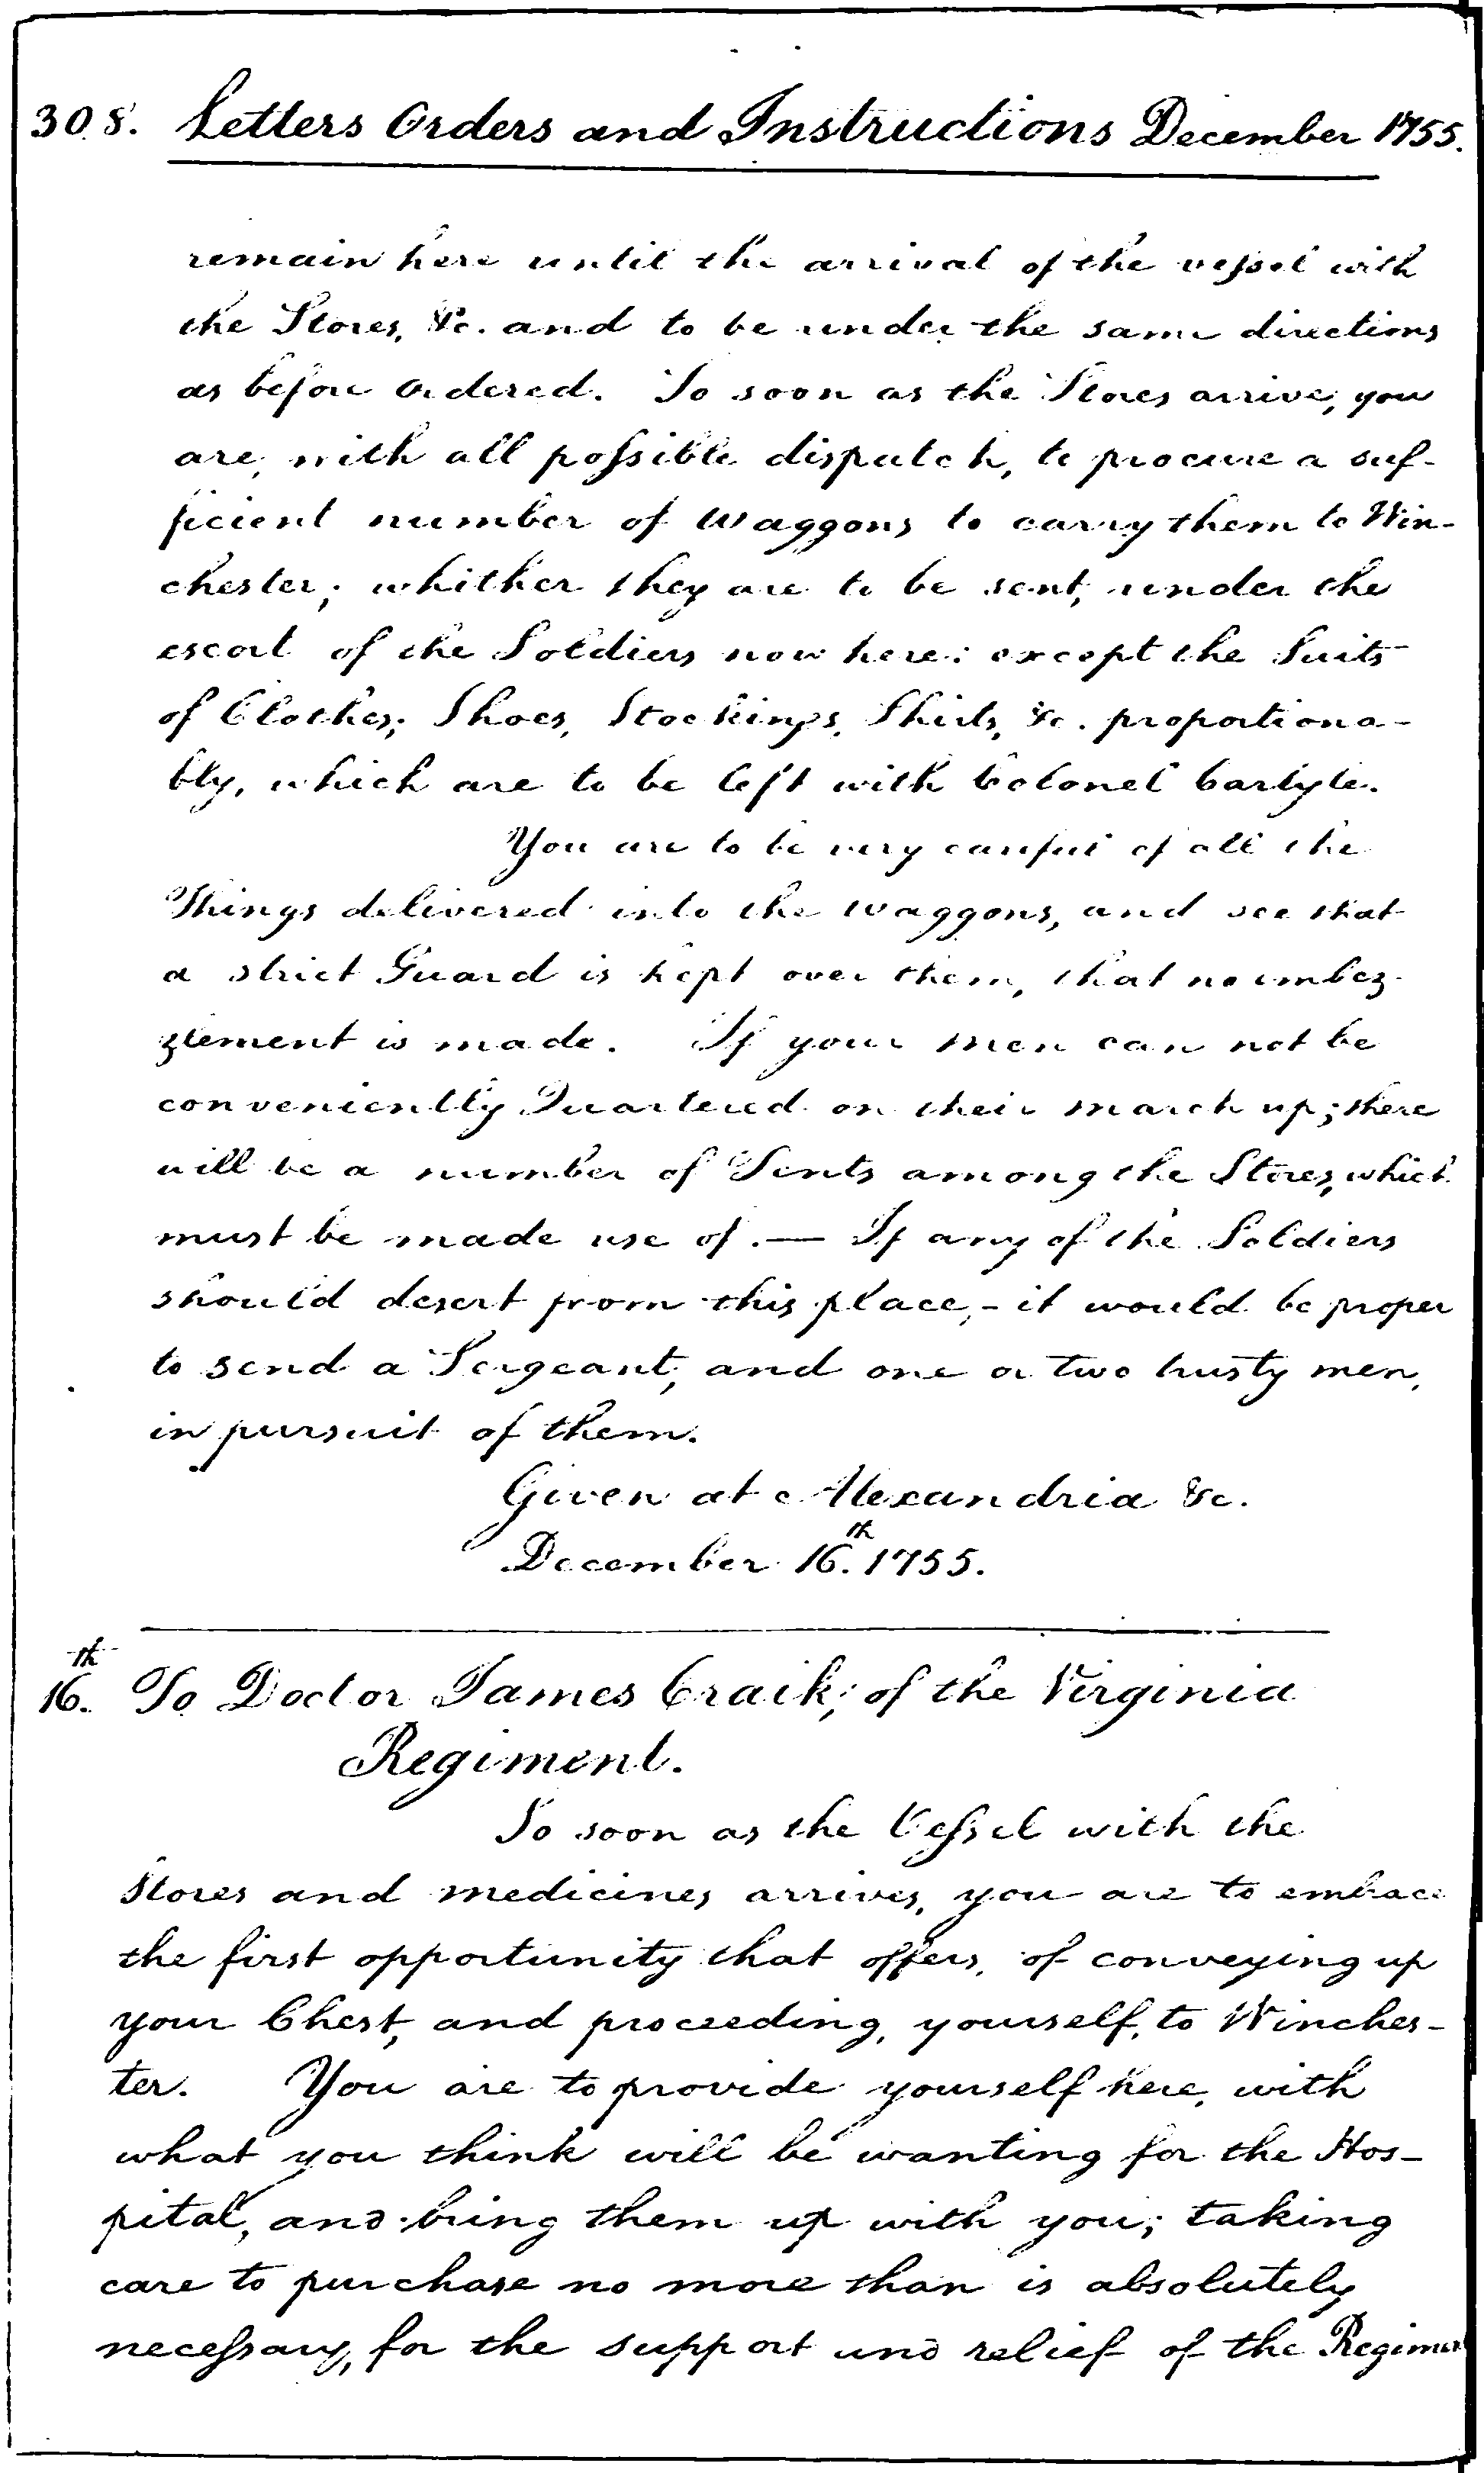 308. Letters Orders and Instructions December 1755.
remain here until the arrival of the vessel with
the Stores, &c. and to be under the same directions
as before ordered. So soon as the Stores arrive, you
are, with all possible dispatch, to procure a suf-
ficient number of Waggons to carry them to Win-
chester; whither they are to be sent, under the
escort of the Soldiers now here: except the Suits
of Clothes; Shoes, Stockings, Shirts, &c. proportiona-
bly, which are to be left with Colonel Carlyle.
You are to be very careful of all the
Things delivered into the waggons, and see that
a strict Guard is kept over them, that no embez-
zlement is made. If your men can not be
conveniently Quartered on their march up; there
will be a number of Tents among the Stores, which
must be made use of. — If any of the Soldiers
should desert from this place, - it would be proper
to send a Sergeant, and one or two trusty men,
in pursuit of them.
Given at Alexandria &c.
December 16.th 1755.
16.th To Doctor James Craik; of the Virginia
Regiment.
So soon as the Vessel with the
Stores and medicines arrives, you are to embrace
the first opportunity that offers, of conveying up
your Chest, and proceeding, yourself, to Winches-
ter. You are to provide yourself here, with
what you think will be wanting for the Hos-
pital, and bring them up with you; taking
care to purchase no more than is absolutely
necessary, for the support and relief of the Regiment